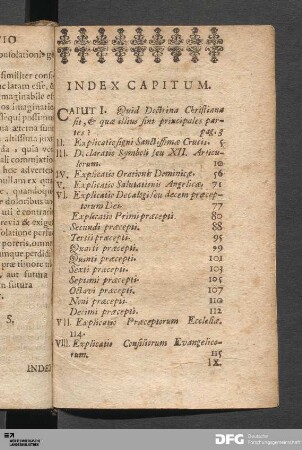 TIO
INDEX CAPITUM.
CAPUT I. Quid Doctrina Christiana
sit, & quæ illius sint principales par-
tes? pag. 3
II. Explicatio signi Sanctissimæ Crucis. 5
III. Declaratio Symboli seu XII. Articu-
lorum. 10
IV. Explicatio Orationis Dominicæ. 56
V. Explicatio Salutationis Angelicæ, 71
VI. Explicatio Decalogi seu decem præcep-
torum Dei. 77
Explicatio Primi præcepti. 80
Secundi præcepti. 88
Tertii præcepti. 95
Quarti præcepti. 99
Quinti præcepti. 101
Sexti præcepti. 103
Septimi præcepti. 105
Octavi præcepti. 107
Noni præcepti. 110
Decimi præcepti. 112
VII. Explicatio Præceptorum Ecclesiæ.
114.
VIII. Explicatio Consiliorum Evangelico-
rum. 115
IX.
S.
INDE
DFG Deutsche
Forschungsgemeinschaft